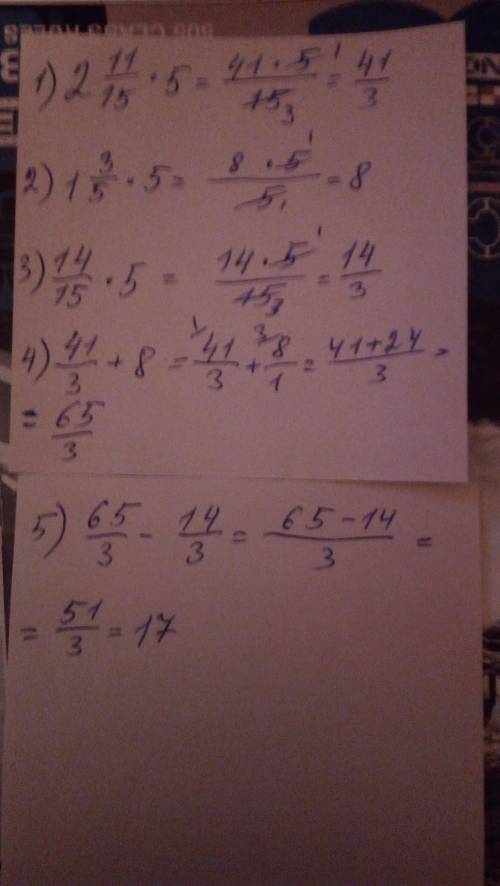 1) 2 11/15 · 5 = 41 · 5 1 / 15 3 = 41/3
2) 1 3/5 · 5 = 8 · 5 1 / 5 1 = 8
3) 14/15 · 5 = 14 · 5 1 / 15 3 = 14/3
4) 41/3 + 8 = 1 41/3 + 3 8/1 = 41+24/3 =
= 65/3
5) 65/3 - 14/3 = 65-14/3 =
= 51/3 = 17